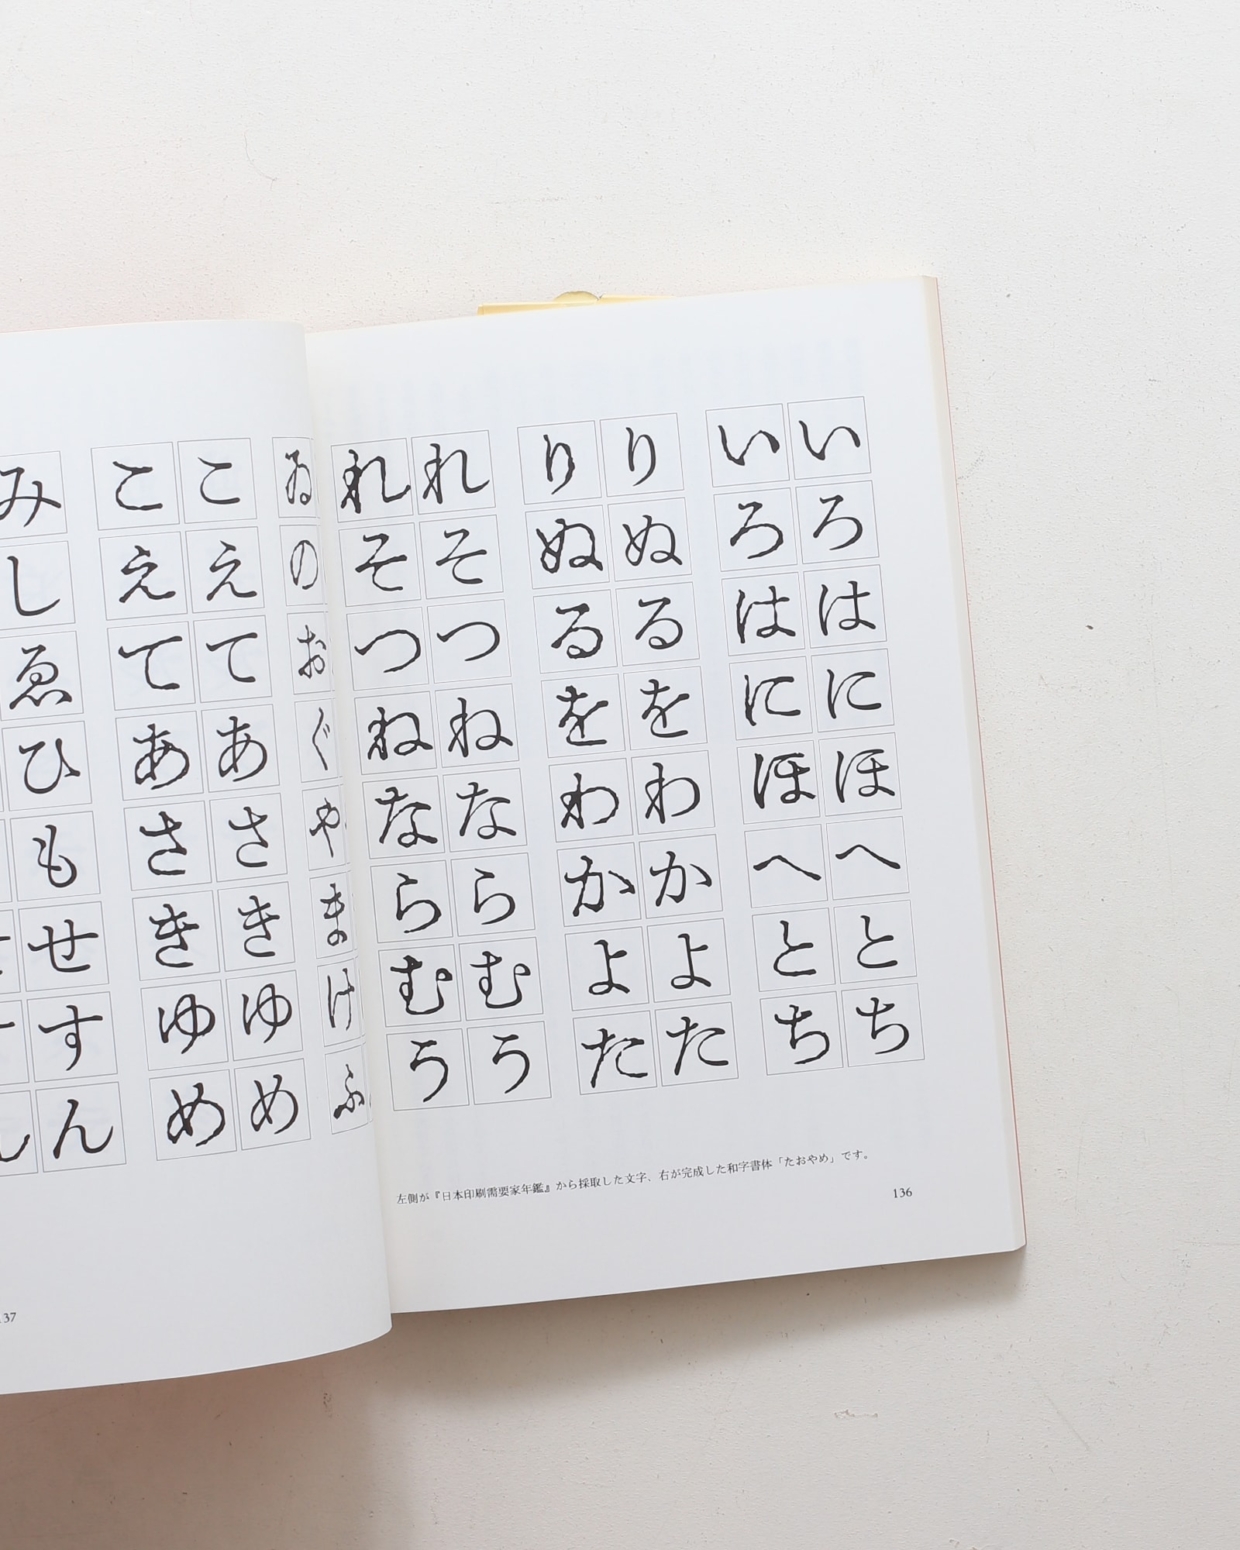 いろはにほへとち
いろはにほへとち
りぬるをわかよた
りぬるをわかよた
れそつねならむう
れそつねならむう
左側が『日本印刷需要家年鑑』から採取した文字、右が完成した和字書体「たおやめ」です。
136
ゐのおくやまけふ
こえてあさきゆめ
こえてあさきゆめ
みしゑひもせすん
137